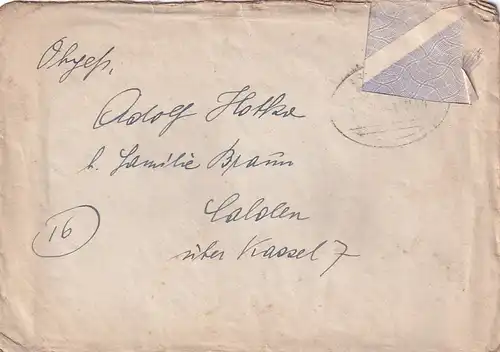 Obgefr.
Adolf Hotka
b. Familie Braun
Calden
über Kassel 7
16